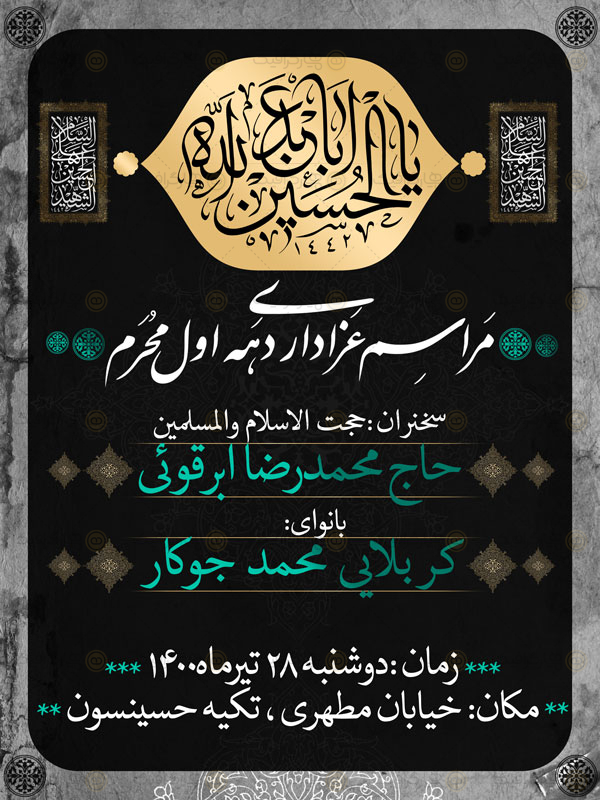 یا اباعبدالله
الحسین
۱۴۴۲
السلام
علیک ایها
الحسین
الشهید
مراسم عزاداری دهه اول محرم
سخنران:حجت الاسلام والمسلمین
حاج محمدرضا ابرقوئی
بانوای:
کربلایی محمد جوکار
*** زمان :دوشنبه ۲۸ تیرماه۱۴۰۰ ***
** مکان: خیابان مطهری ، تکیه حسینسون **